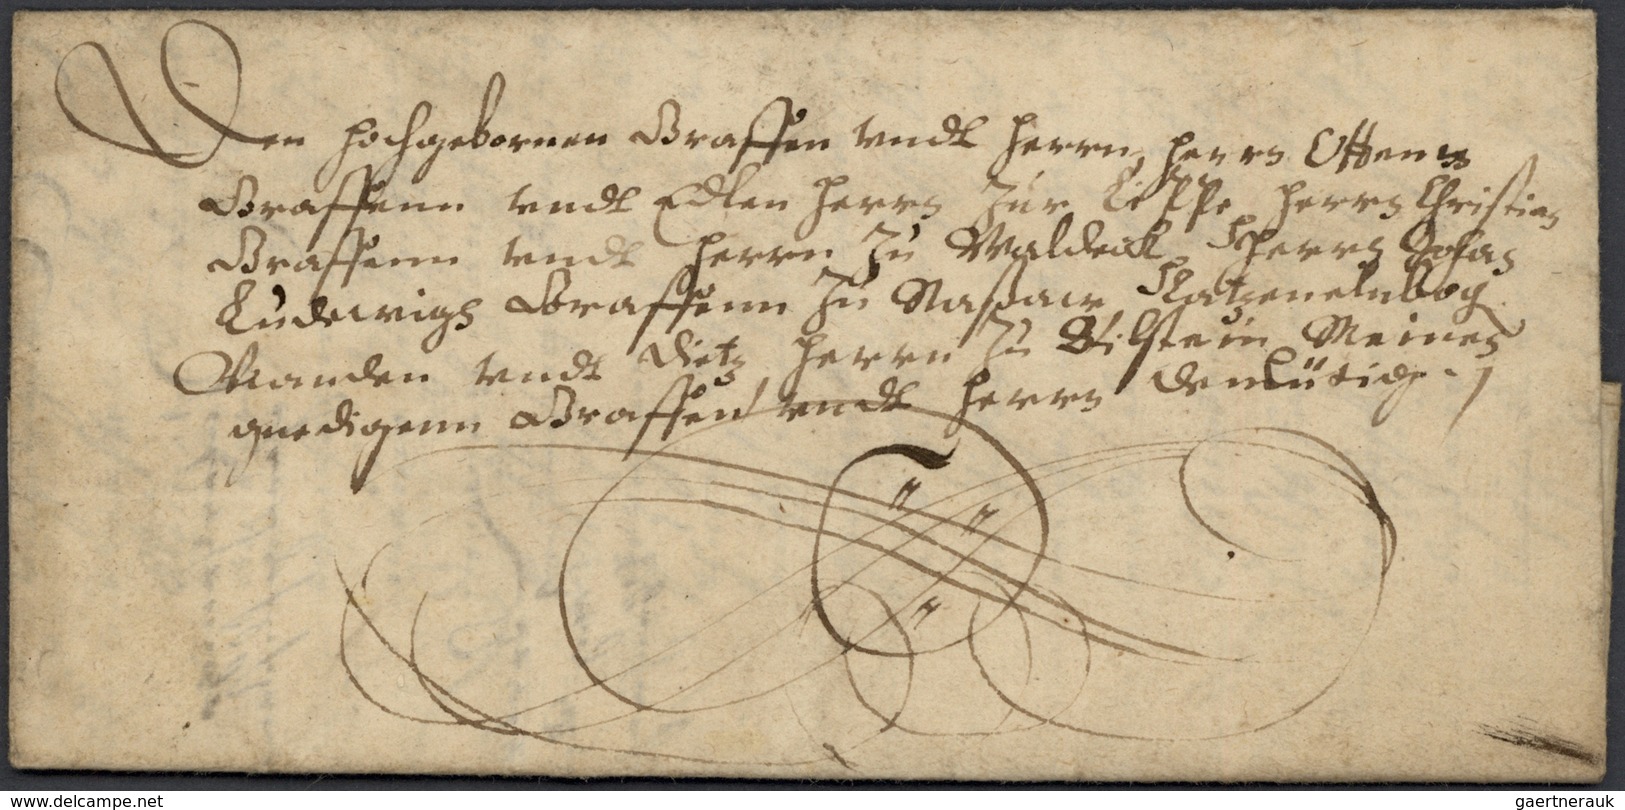 Den hochgebornen Graffen vndt Herrn, Herrn Otten
Graffenn vndt Edlen Herrn Zur Lippe, Herrn Christian
Graffenn vndt Herrn Zu Waldeck Herrn Johan
Ludewigh Graffenn Zu Naßaw Katzenelnbog
Vianden vndt Dietz, Herrn Zu Bilstein Meinen
gnedigenn Graffen vndt Herrn Demütig
www.delcampe.net
gaertnerauk